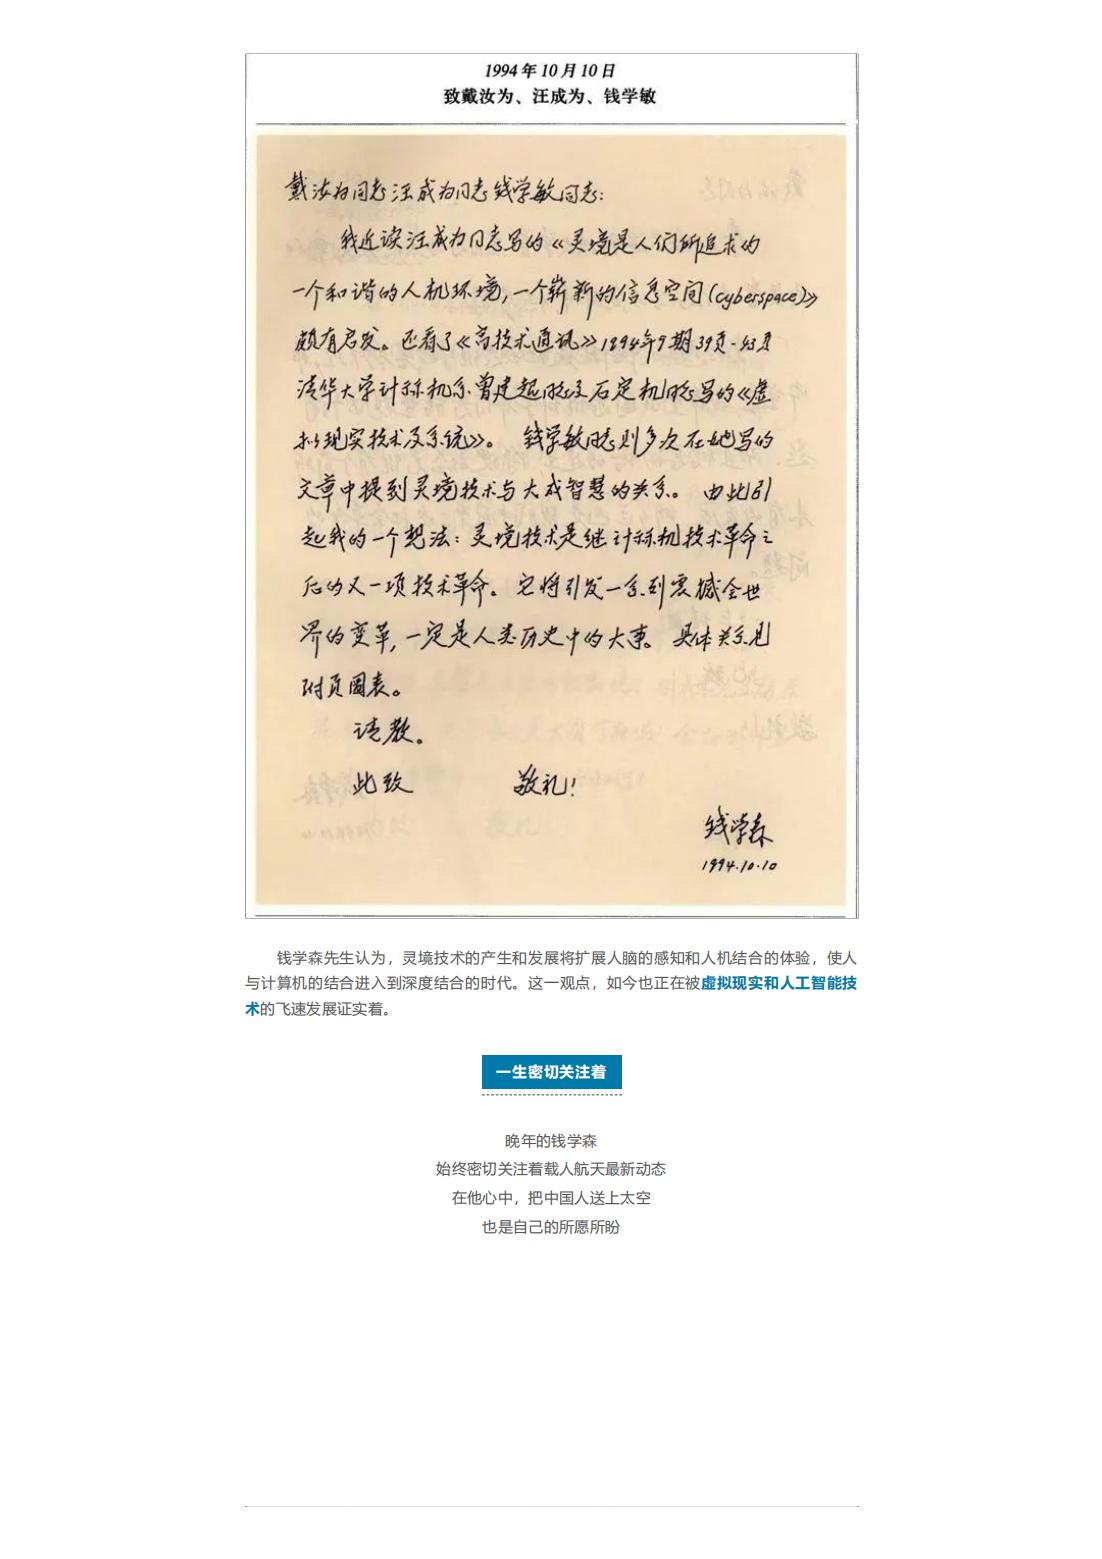 1994年10月10日
致戴汝为、汪成为、钱学敏
戴汝为同志汪成为同志钱学敏同志:
我近读汪成为同志写的《灵境是人们所追求的
一个和谐的人机环境,一个崭新的信息空间(cyberspace)》
颇有启发。还看了《高技术通讯》1994年9期39页-43页
清华大学计祘机系曾建超同志石定机同志写的《虚
拟现实技术及系统》。 钱学敏同志则多次在她写的
文章中提到灵境技术与大成智慧的关系。 由此引
起我的一个想法:灵境技术是继计祘机技术革命之
后的又一项技术革命。它将引发一系列震撼全世
界的变革,一定是人类历史中的大事。具体关系见
附页圖表。
请教。
此致 敬礼!
钱学森
1994.10.10
钱学森先生认为，灵境技术的产生和发展将扩展人脑的感知和人机结合的体验，使人
与计算机的结合进入到深度结合的时代。这一观点，如今也正在被虚拟现实和人工智能技
术的飞速发展证实着。
一生密切关注着
晚年的钱学森
始终密切关注着载人航天最新动态
在他心中，把中国人送上太空
也是自己的所愿所盼